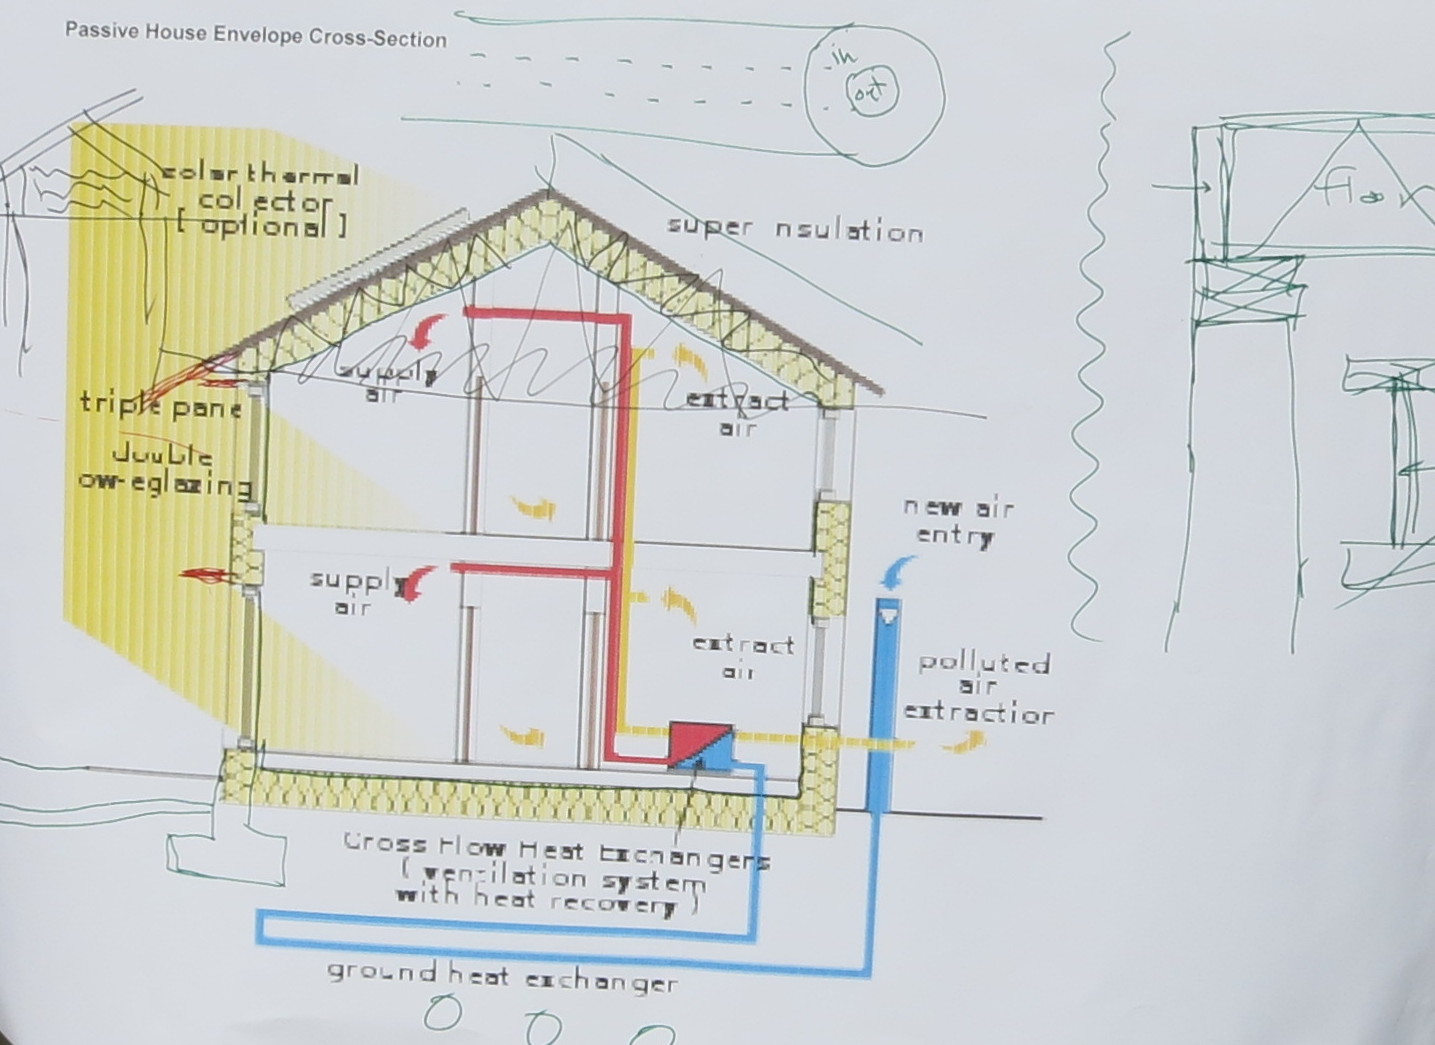 Passive House Envelope Cross-Section
in
out
solar thermal
collector
[ optional ]
super nsulation
floor
supply
air
extract
air
triple pane
double
ow-eglazing
new air
entry
supply
air
extract
air
polluted
air
extraction
Cross Flow Heat Exchangers
( ventilation system
with heat recovery )
ground heat exchanger